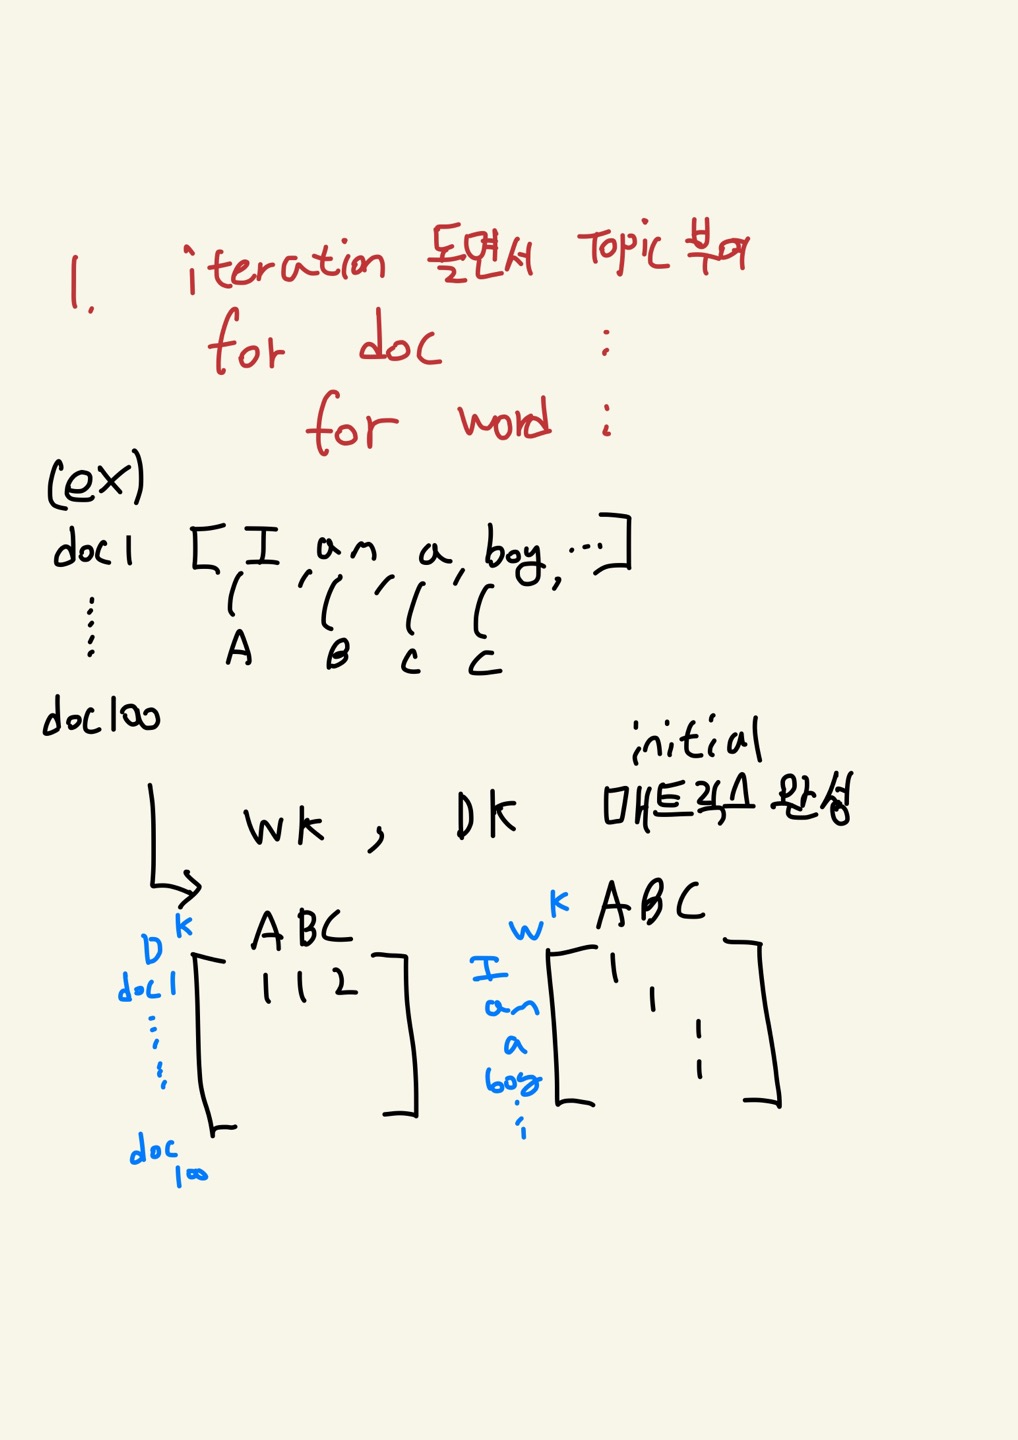 1. iteration 돌면서 Topic 부여
for doc :
for word :
(ex)
doc1 [I, am, a, boy, ...]
A B C C
doc100
initial
WK, DK 매트릭스 완성
K A B C
D
doc1 1 1 2
doc
100
K A B C
W
I 1
am 1
a 1
boy 1